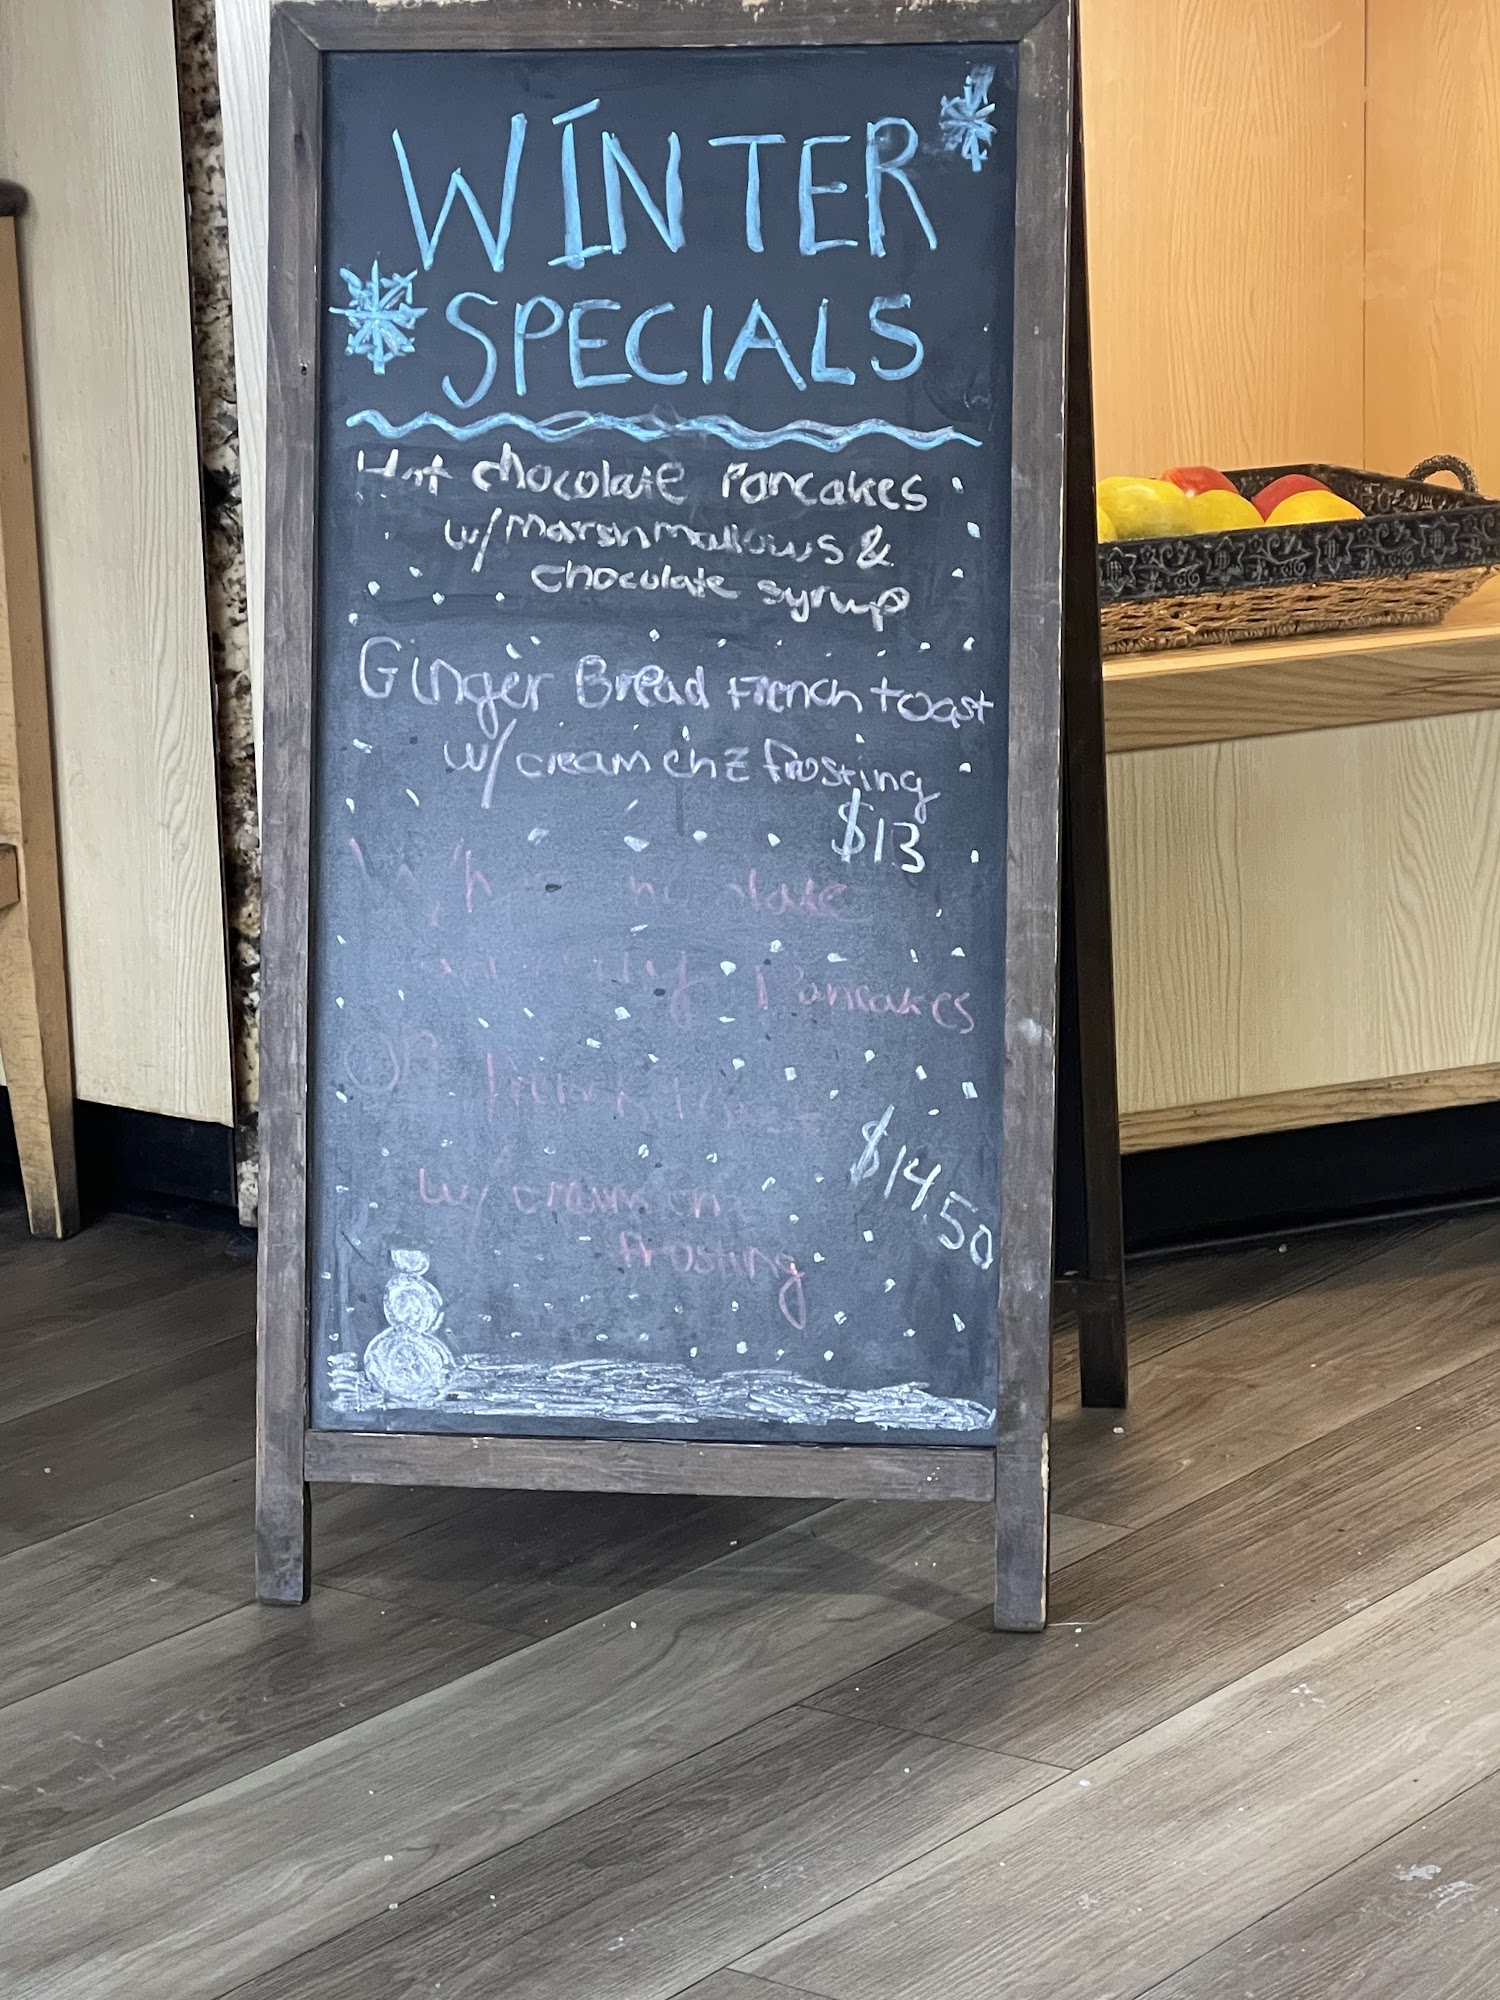 WINTER
SPECIALS
Hot chocolate Pancakes
w/ marshmallows &
chocolate syrup
Ginger Bread French toast
w/ cream chz frosting
$13
Pancakes
OR
$14.50
w/ cream chz
frosting